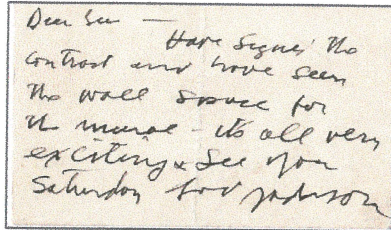 Dear Lee —
Have signed the
contract and have seen
the wall space for
the mural – its all very
exciting & See you
Saturday love Jackson